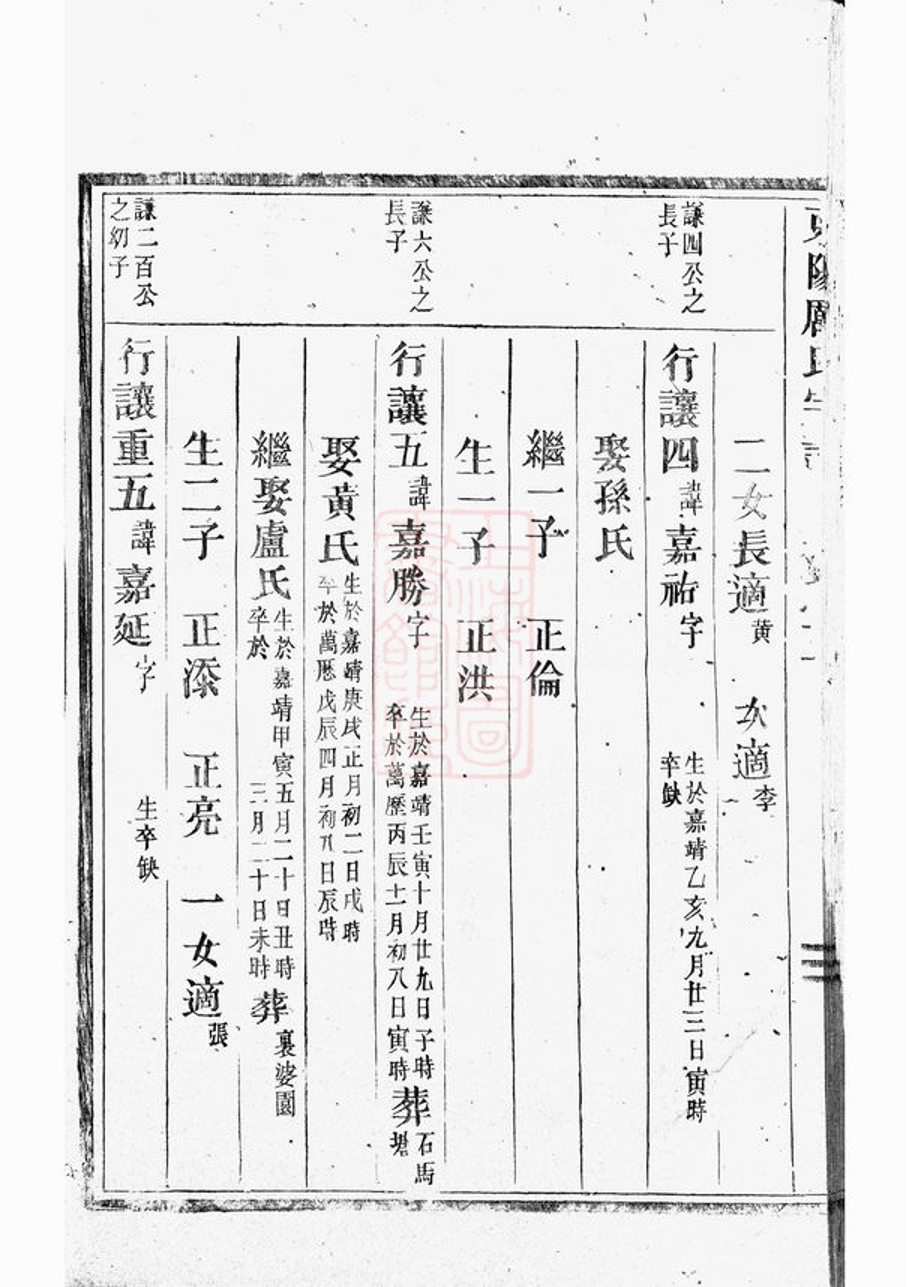 二女長適黄　次適李
謙四公之長子
行讓四諱嘉祐字　生於嘉靖乙亥九月廿三日寅時卒缺
娶孫氏
繼一子　正倫
生一子　正洪
謙六公之長子
行讓五諱嘉勝字　生於嘉靖壬寅十月廿九日子時卒於萬歷丙辰十一月初八日寅時葬石馬塘
娶黄氏生於嘉靖庚戌正月初二日戌時卒於萬歷戊辰四月初八日辰時
繼娶盧氏生於嘉靖甲寅五月二十日丑時卒於　三月二十日未時葬裏婆園
生二子　正添　正亮　一女適張
謙二百公之幼子
行讓重五諱嘉延字　生卒缺